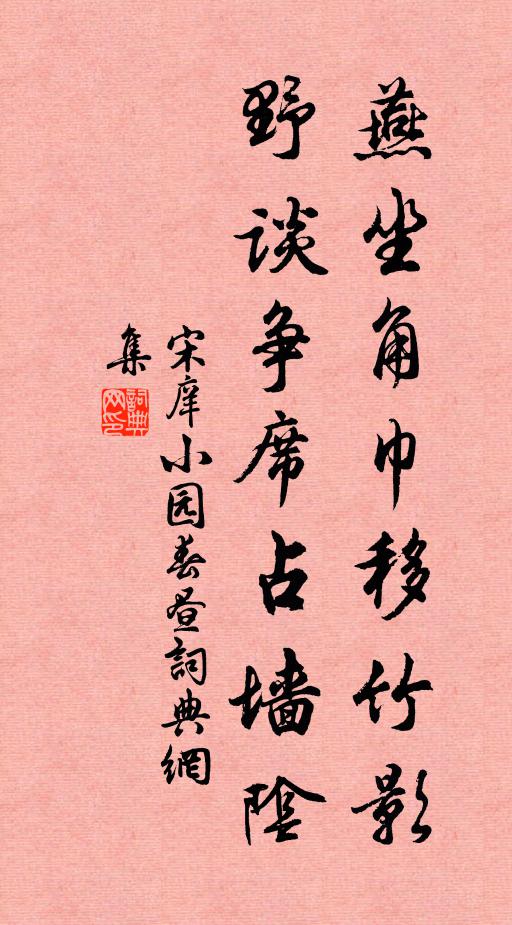 燕坐角巾移竹影
野谈争席占墙陰
宋庠小园春昼詞典網
集
詞典
网印